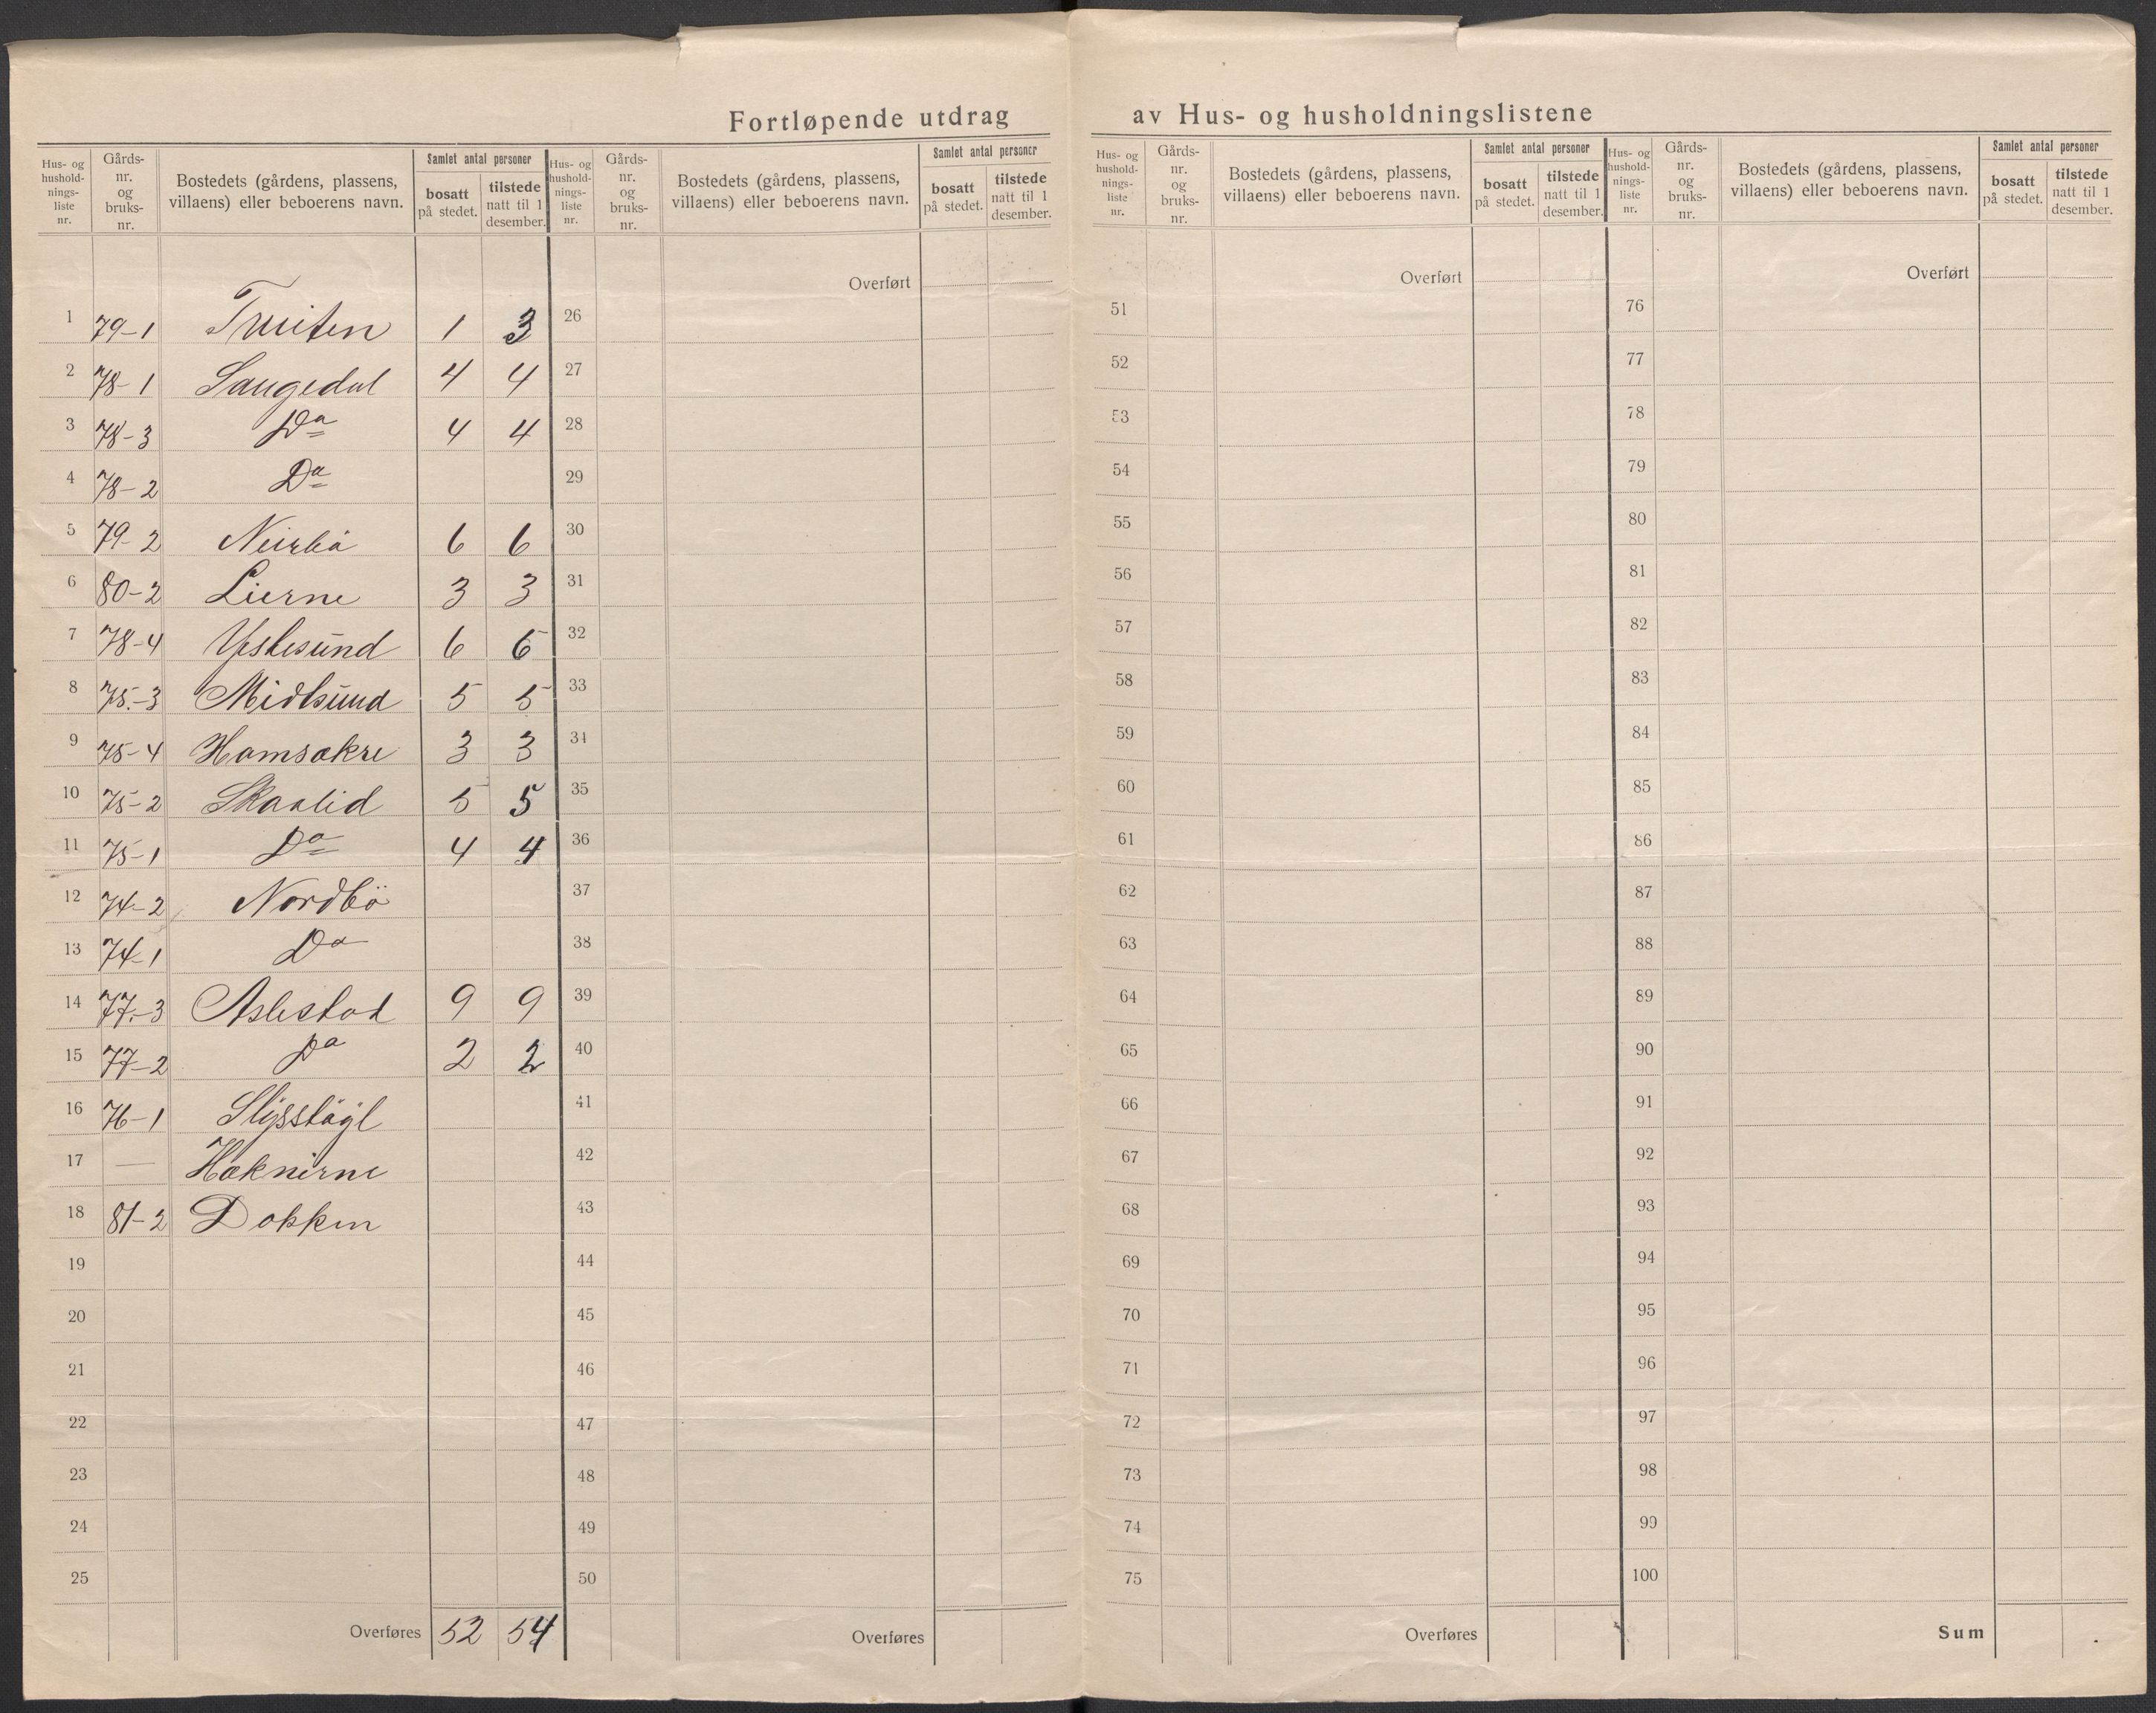 Fortløpende utdrag av Hus- og husholdningslistene
Hus- og hushold-nings-liste nr. | Gårds-nr. og bruks-nr. | Bostedets (gårdens, plassens, villaens) eller beboerens navn. | Samlet antal personer | bosatt på stedet. | tilstede natt til 1 desember.
1 79-1 1 3
2 78-1 Langedal 4 4
3 78-3 Da 4 4
4 78-2 Da
5 79-2 6 6
6 80-2 Lierne 3 3
7 78-4 Ystesund 6 6
8 75-3 Midtsund 5 5
9 75-4 Homsakre 3 3
10 75-2 Skaalid 5 5
11 75-1 Do 4 4
12 74-2 Nordbö
13 74-1 Da
14 77-3 Aslestad 9 9
15 77-2 Da 2 2
16 76-1
17 —
18 81-2 Dokken
19
20
21
22
23
24
25
Overføres 52 54
Hus- og hushold-nings-liste nr. | Gårds-nr. og bruks-nr. | Bostedets (gårdens, plassens, villaens) eller beboerens navn. | Samlet antal personer | bosatt på stedet. | tilstede natt til 1 desember.
Overført
26
27
28
29
30
31
32
33
34
35
36
37
38
39
40
41
42
43
44
45
46
47
48
49
50
Overføres
Hus- og hushold-nings-liste nr. | Gårds-nr. og bruks-nr. | Bostedets (gårdens, plassens, villaens) eller beboerens navn. | Samlet antal personer | bosatt på stedet. | tilstede natt til 1 desember.
Overført
51
52
53
54
55
56
57
58
59
60
61
62
63
64
65
66
67
68
69
70
71
72
73
74
75
Overføres
Hus- og hushold-nings-liste nr. | Gårds-nr. og bruks-nr. | Bostedets (gårdens, plassens, villaens) eller beboerens navn. | Samlet antal personer | bosatt på stedet. | tilstede natt til 1 desember.
Overført
76
77
78
79
80
81
82
83
84
85
86
87
88
89
90
91
92
93
94
95
96
97
98
99
100
Sum